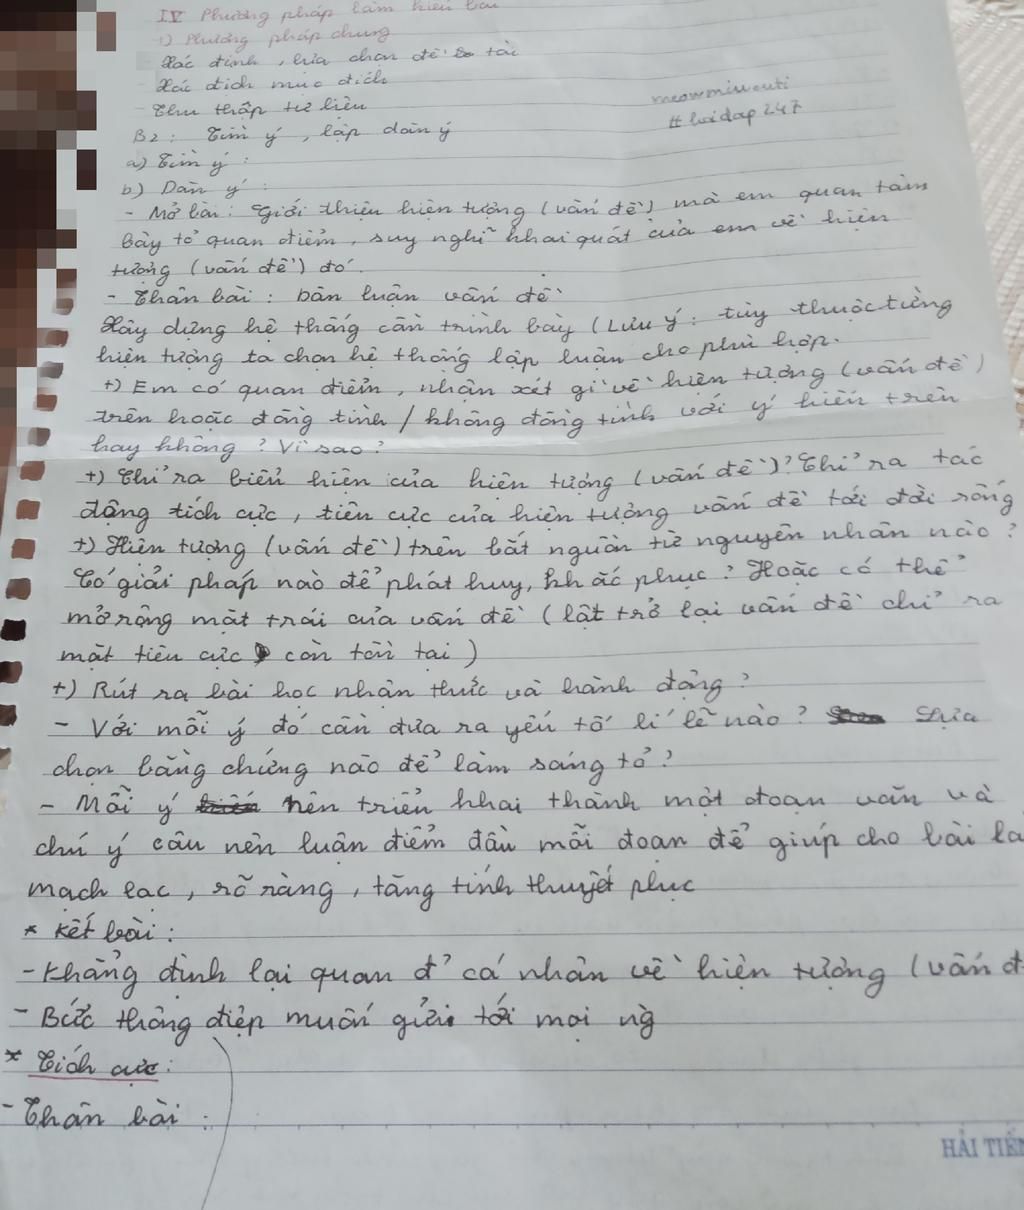 IV Phương pháp làm kiểu bài
1) Phương pháp chung
- Xác định, lựa chọn đề tài
- Xác địch mục đích
- Thu thập tư liệu
meowmiucuti
# hoidap 247
B2: Tìm ý, lập dàn ý
a) Tìm ý:
b) Dàn ý:
- Mở bài: Giới thiệu hiện tượng (vấn đề) mà em quan tâm
bày tỏ quan điểm, suy nghĩ khái quát của em về hiện
tượng (vấn đề) đó.
- Thân bài: bàn luận vấn đề
Xây dựng hệ thống cần trình bày (Lưu ý: tùy thuộc từng
hiện tượng ta chọn hệ thống lập luận cho phù hợp.
+) Em có quan điểm, nhận xét gì về hiện tượng (vấn đề)
trên hoặc đồng tình / không đồng tình với ý kiến trên
hay không? Vì sao?
+) Chỉ ra biểu hiện của hiện tượng (vấn đề)? Chỉ ra tác
động tích cực, tiêu cực của hiện tượng vấn đề tới đời sống
+) Hiện tượng (vấn đề) trên bắt nguồn từ nguyên nhân nào?
Có giải pháp nào để phát huy, khắc phục? Hoặc có thể
mở rộng mặt trái của vấn đề (lật trở lại vấn đề chỉ ra
mặt tiêu cực còn tồn tại)
+) Rút ra bài học nhận thức và hành động?
- Với mỗi ý đó cần đưa ra yếu tố lí lẽ nào? Lựa
chọn bằng chứng nào để làm sáng tỏ?
- Mỗi ý nên triển khai thành một đoạn văn và
chú ý câu nên luận điểm đầu mỗi đoạn để giúp cho bài
mạch lạc, rõ ràng, tăng tính thuyết phục
* Kết bài:
- Khẳng định lại quan đ' cá nhân về hiện tượng (vấn đ
- Bức thông điệp muốn gửi tới mọi ng
* Tích cực:
- Thân bài:
HẢI TIẾN